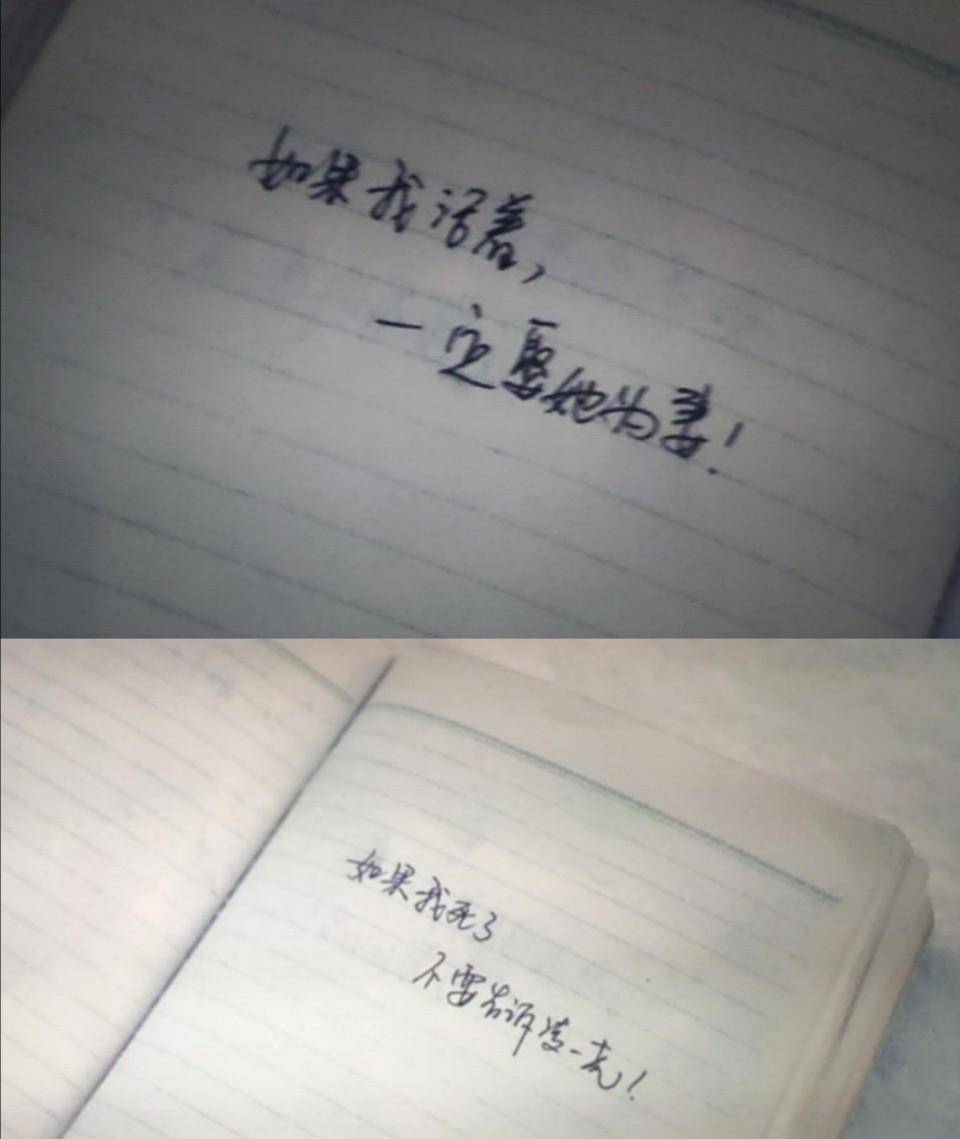 如果我活着,
一定娶她为妻!
如果我死了
不要告诉凌一尧!